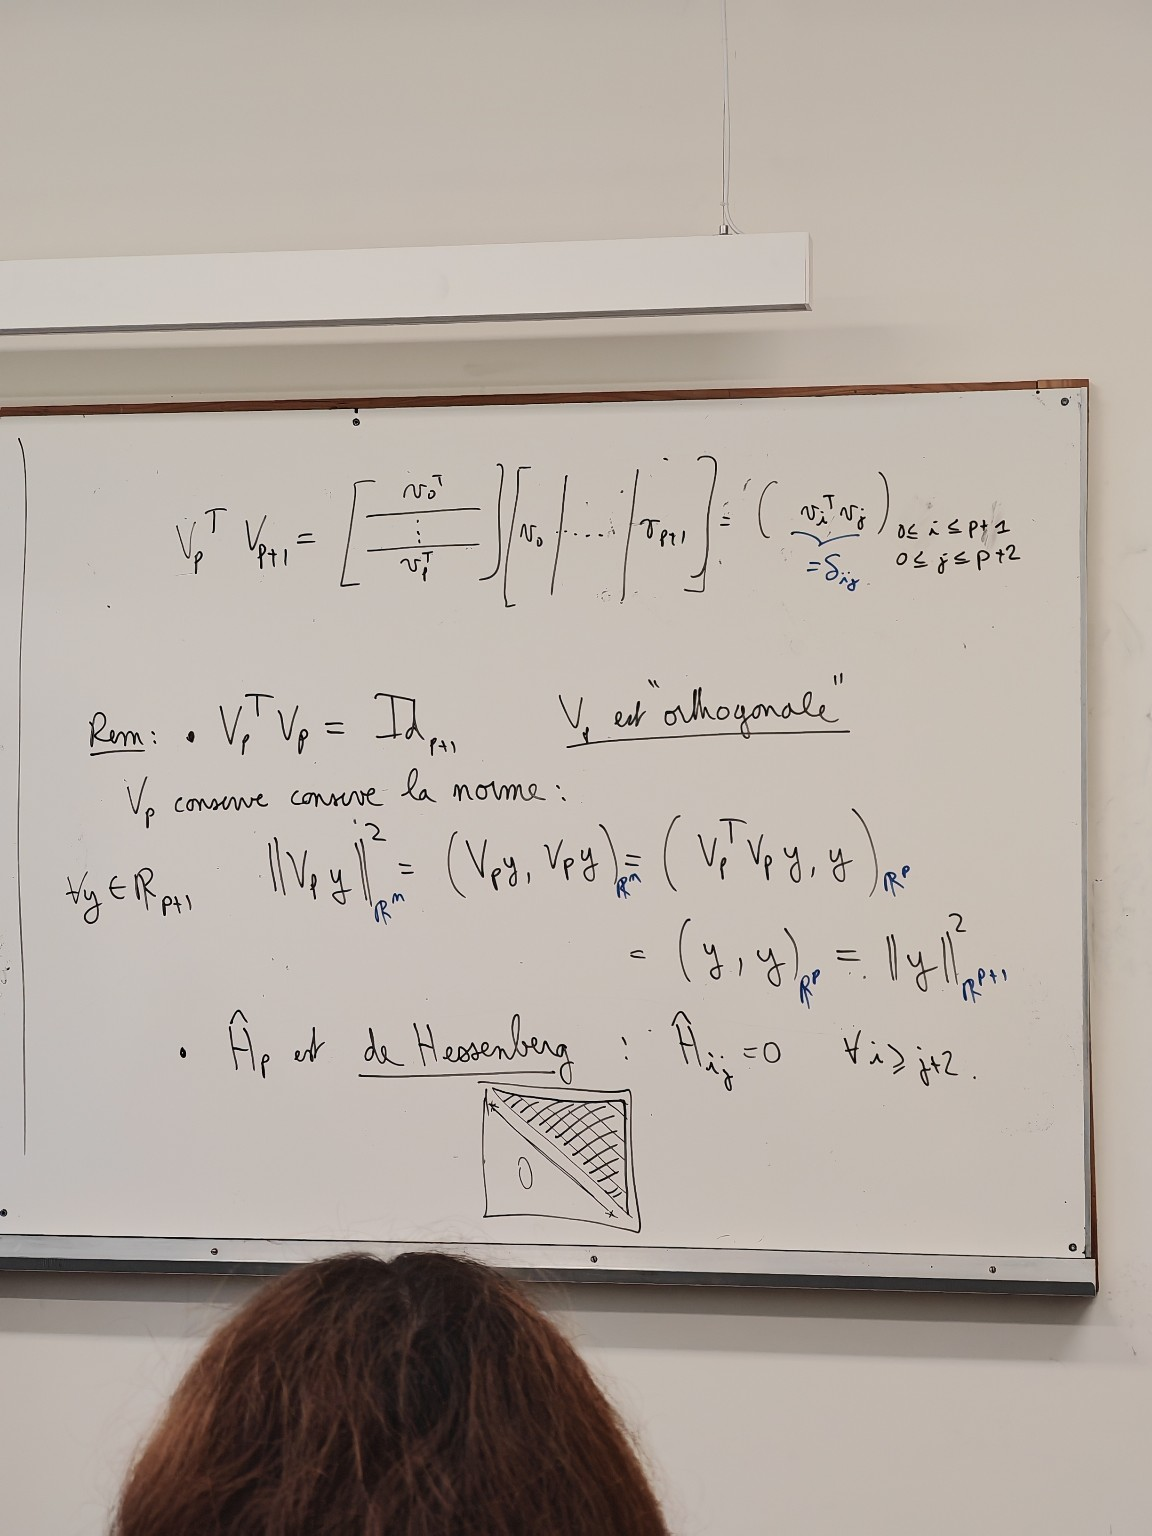 V_p^T V_{p+1} = [ v_0^T ⋮ v_p^T ] [ v_0 | .... | v_{p+1} ] = ( v_i^T v_j )_{0 ≤ i ≤ p+1, 0 ≤ j ≤ p+2}
= δ_{ij}
Rem : • V_p^T V_p = Id_{p+1} V_p est "orthogonale"
V_p conserve conserve la norme :
∀y ∈ ℝ_{p+1} ‖V_p y‖²_{ℝ^n} = (V_p y, V_p y)_{ℝ^n} = (V_p^T V_p y, y)_{ℝ^p}
= (y, y)_{ℝ^p} = ‖y‖²_{ℝ^{p+1}}
• Ĥ_p est de Hessenberg : Ĥ_{ij} = 0 ∀ i ≥ j+2.
0